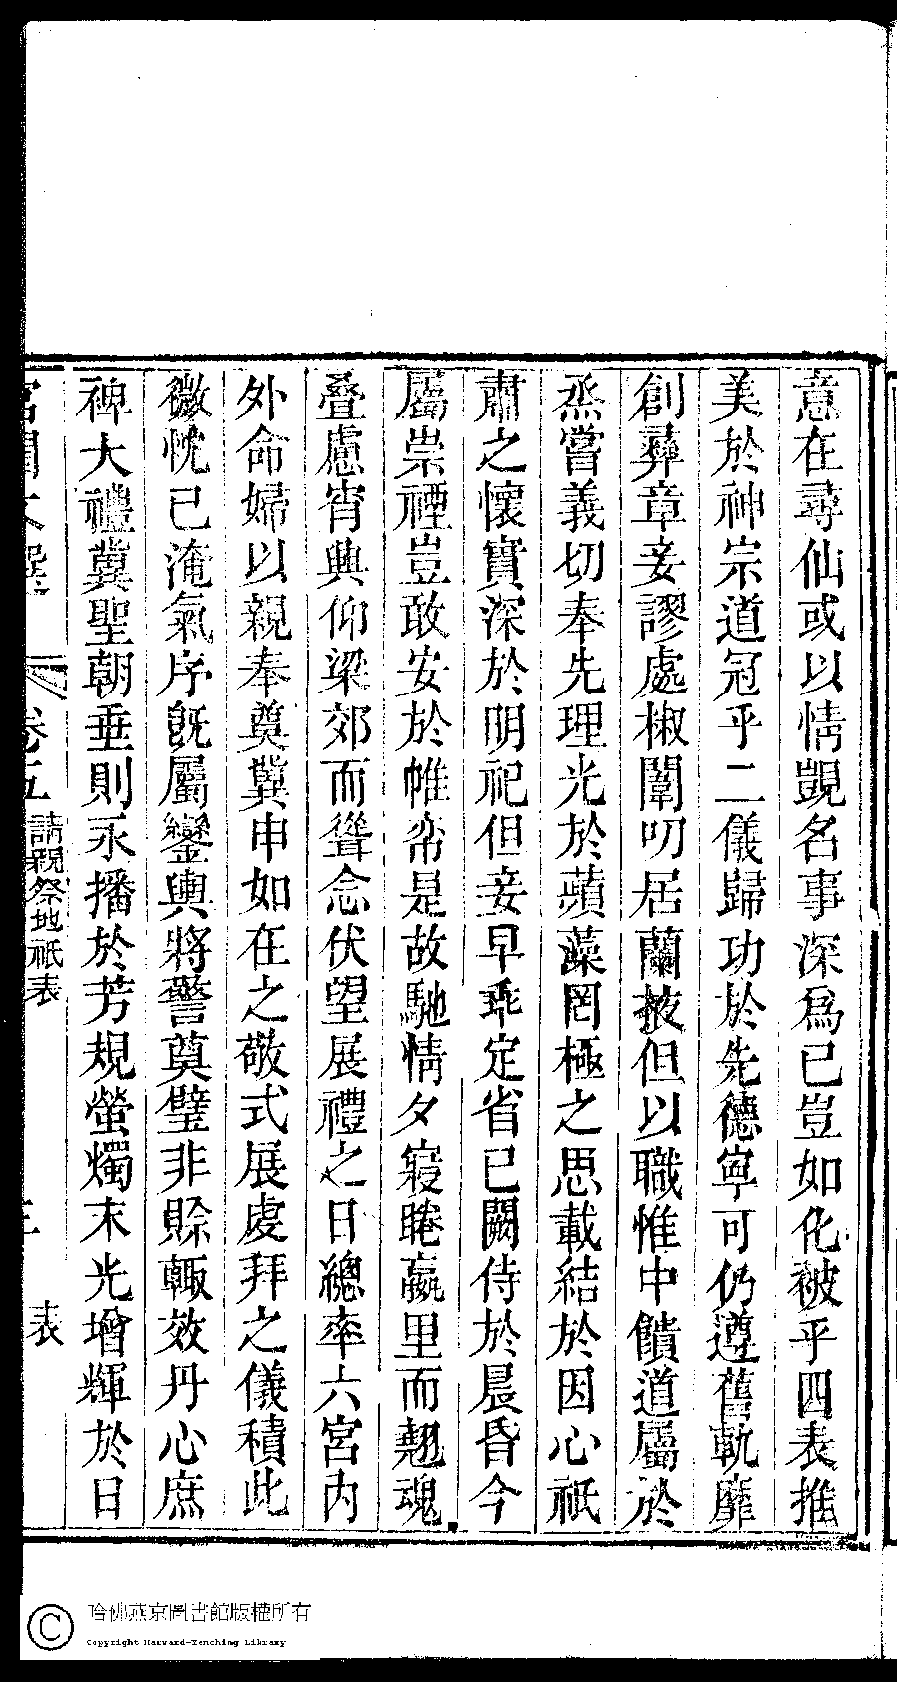 意在尋仙或以情覬名事深爲已豈如化被乎四表推
美於神宗道冠乎二儀歸功於先德寧可仍遵舊軌靡
創彛章妾謬處椒闈叨居蘭掖但以職惟中饋道屬於
烝嘗義切奉先理光於蘋藻罔極之思載結於因心祇
肅之懷實深於明祀但妾早乖定省已闕侍於晨昏今
屬崇禋豈敢安於帷帟是故馳情夕寢睠嬴里而翹魂
疊慮宵興仰梁郊而聳念伏望展禮之日總率六宮內
外命婦以親奉奠冀申如在之敬式展虔拜之儀積此
微忱已淹氣序旣屬鑾輿將警奠璧非賖輙效丹心庶
裨大禮冀聖朝垂則永播於芳規螢燭末光增輝於日
宮閨文選 卷五 請親祭地祇表 三 表
哈佛燕京圖書館版權所有
Copyright Harvard-Yenching Library